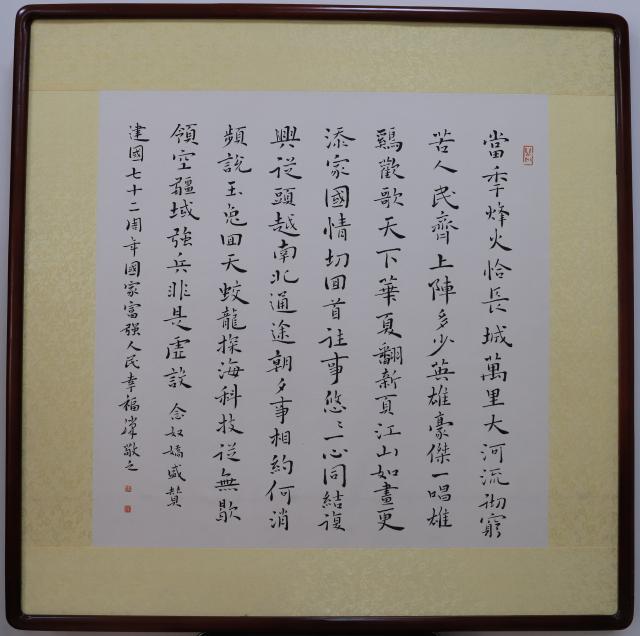 當年烽火恰長城萬里大河流彻窮
苦人民齊上陣多少英雄豪傑一唱雄
鷄歡歌天下華夏翻新頁江山如畫更
添家國情切回首往事悠〻一心同結復
興従頭越南北通途朝夕事相約何消
頻説玉兔回天蛟龍探海科技従無歇
領空疆域强兵非是虛設 念奴嬌盛贊
建國七十二周年國家富强人民幸福 敬之